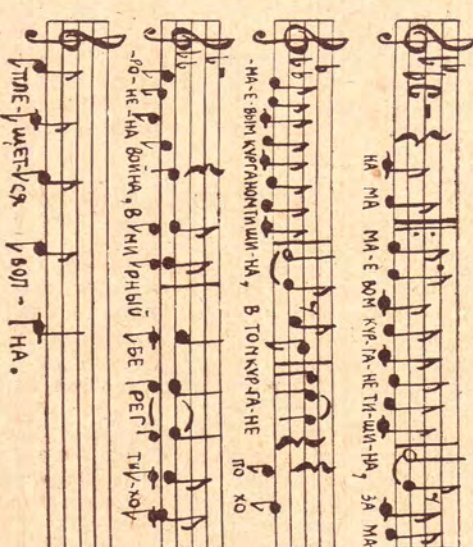 НА МА МА-Е ВОМ КУР-ГА-НЕ ТИ-ШИ-НА, ЗА МА
-МА-Е-ВЫМ КУРГАНОМ ТИШИ-НА, В ТОМ КУР-ГА-НЕ ПО ХО
-РО-НЕ-НА ВОЙНА, В МИ РНЫЙ БЕ РЕГ ТИ-ХО
ПЛЕ-ЩЕТ-СЯ ВОЛ-НА.